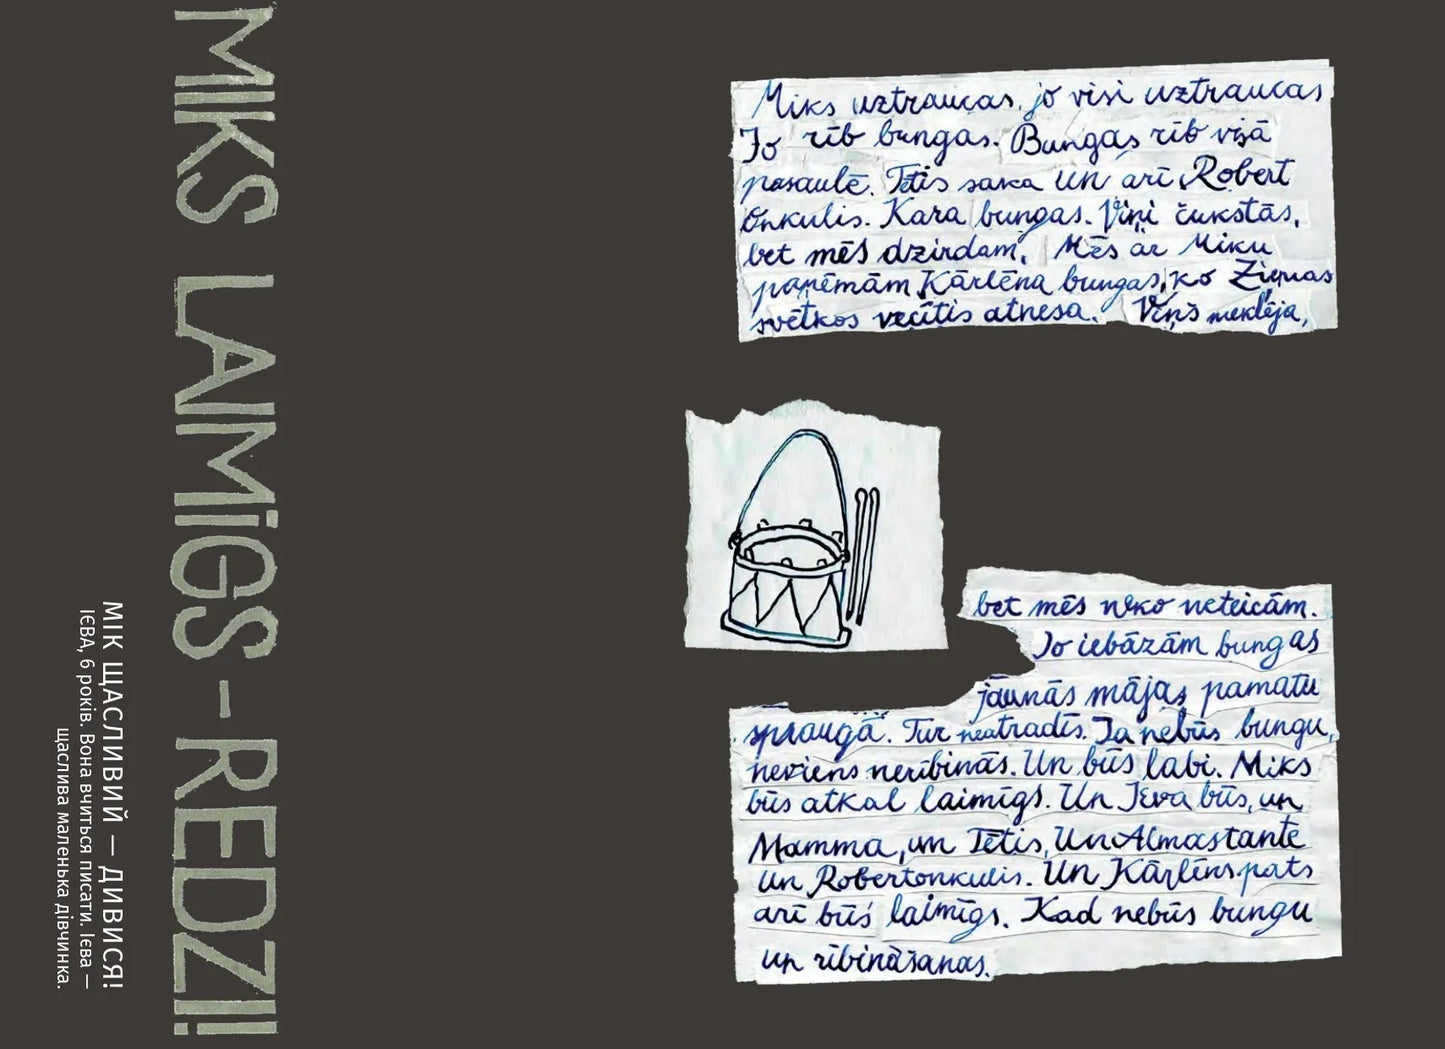 MIKS LAIMĪGS – REDZI!
МІК ЩАСЛИВИЙ — ДИВИСЯ!
ІЄВА, 6 років. Вона вчиться писати. Ієва —
щаслива маленька дівчинка.
Miks uztraucas, jo visi uztraucas
Jo rīb bungas. Bungas rīb visā
pasaulē. Tētis saka Un arī Robert
Onkulis. Kara bungas. Viņi čukstās,
bet mēs dzirdam. Mēs ar Miku
paņēmām Kārlēna bungas, ko Ziemas
svētkos vecītis atnesa. Viņš meklēja,
bet mēs neko neteicām.
Jo iebāzām bungas
jaunās mājas pamatu
spraugā. Tur neatradīs. Ja nebūs bungu,
neviens neribinās. Un būs labi. Miks
būs atkal laimīgs. Un Ieva būs, un
Mamma, un Tētis, Un Almastante
un Robertonkulis. Un Kārlēns pats
arī būs laimīgs. Kad nebūs bungu
un rībināšanas.